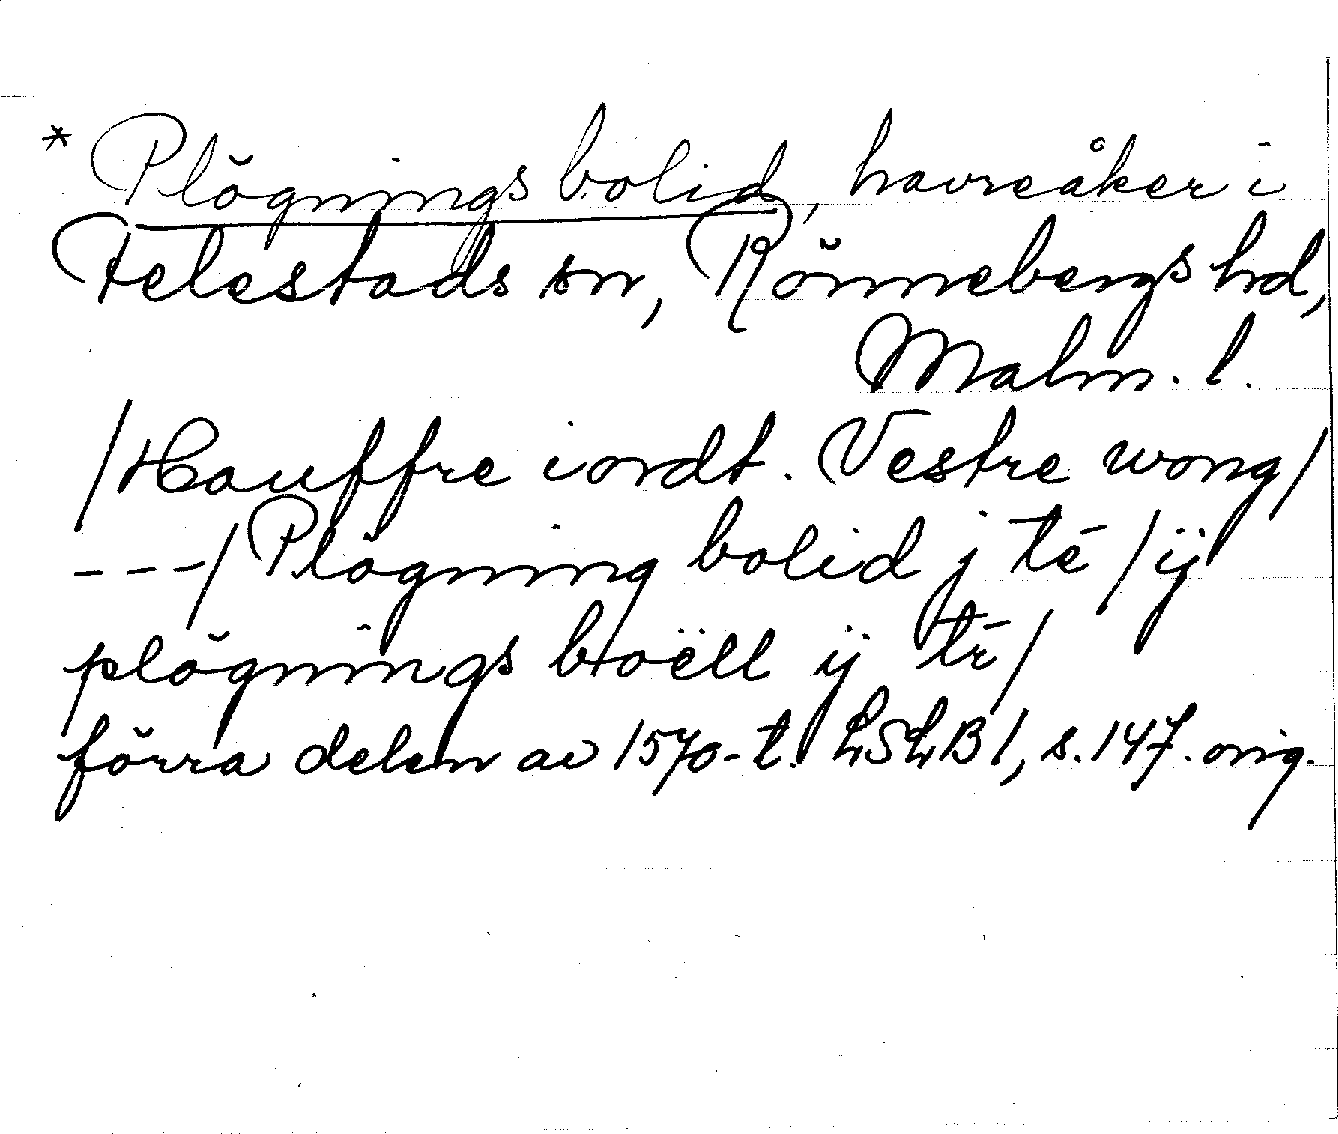 * Plögningsbolid, havreåker i
Felestads sn, Rönnebergs hd,
Malm. l.
/Hauffre iordt. Vestre wong/
---/Plögning bolid j tē /ij
plögnings boëll ij tr̄/
förra delen av 1570-t. LSLB 1, s. 147. orig.